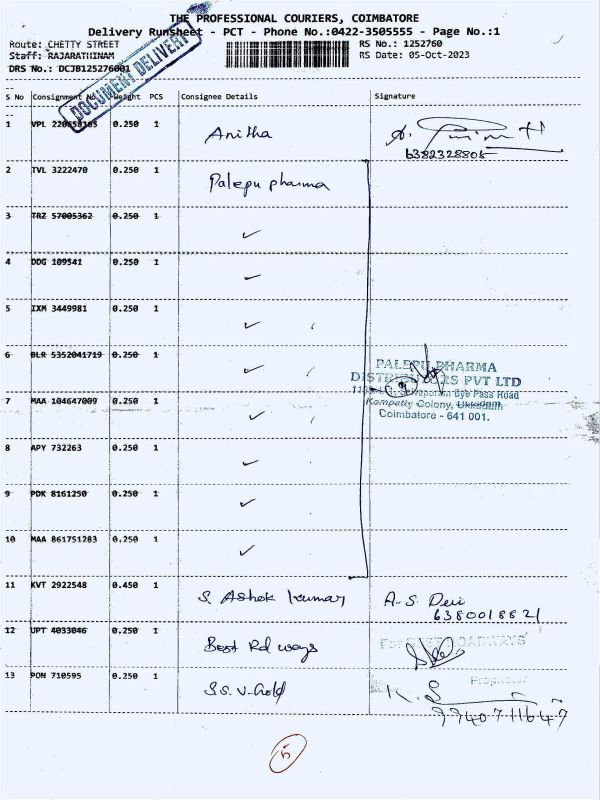 THE PROFESSIONAL COURIERS, COIMBATORE
Delivery Runsheet - PCT - Phone No.:0422-3505555 - Page No.:1
Route: CHETTY STREET RS No.: 1252760
Staff: RAJARATHINAM RS Date: 05-Oct-2023
DRS No.: DCJB125276001
DOCUMENT DELIVERY
S No Consignment No. Weight PCS Consignee Details Signature
1 VPL 0.250 1 Anitha
6382328805
2 TVL 3222470 0.250 1 Palepu pharma
3 TRZ 57005362 0.250 1 ✓
4 DDG 109541 0.250 1 ✓
5 IXM 3449981 0.250 1 ✓
6 BLR 5352041719 0.250 1 ✓
PALEPU PHARMA
DISTRIBUTORS PVT LTD
Bye Pass Road
7 MAA 104647009 0.250 1 ✓ Kempatty Colony, Ukkadam
Coimbatore - 641 001.
8 APY 732263 0.250 1 ✓
9 PDK 8161250 0.250 1 ✓
10 MAA 861751283 0.250 1 ✓
11 KVT 2922548 0.450 1 S. Ashok kumar A-S. Devi
6380018821
12 UPT 4033046 0.250 1 Best Rd ways For BEST ROADWAYS
13 PON 710595 0.250 1 S.S. V-Gold Proprietor
K. S
9940711647
5